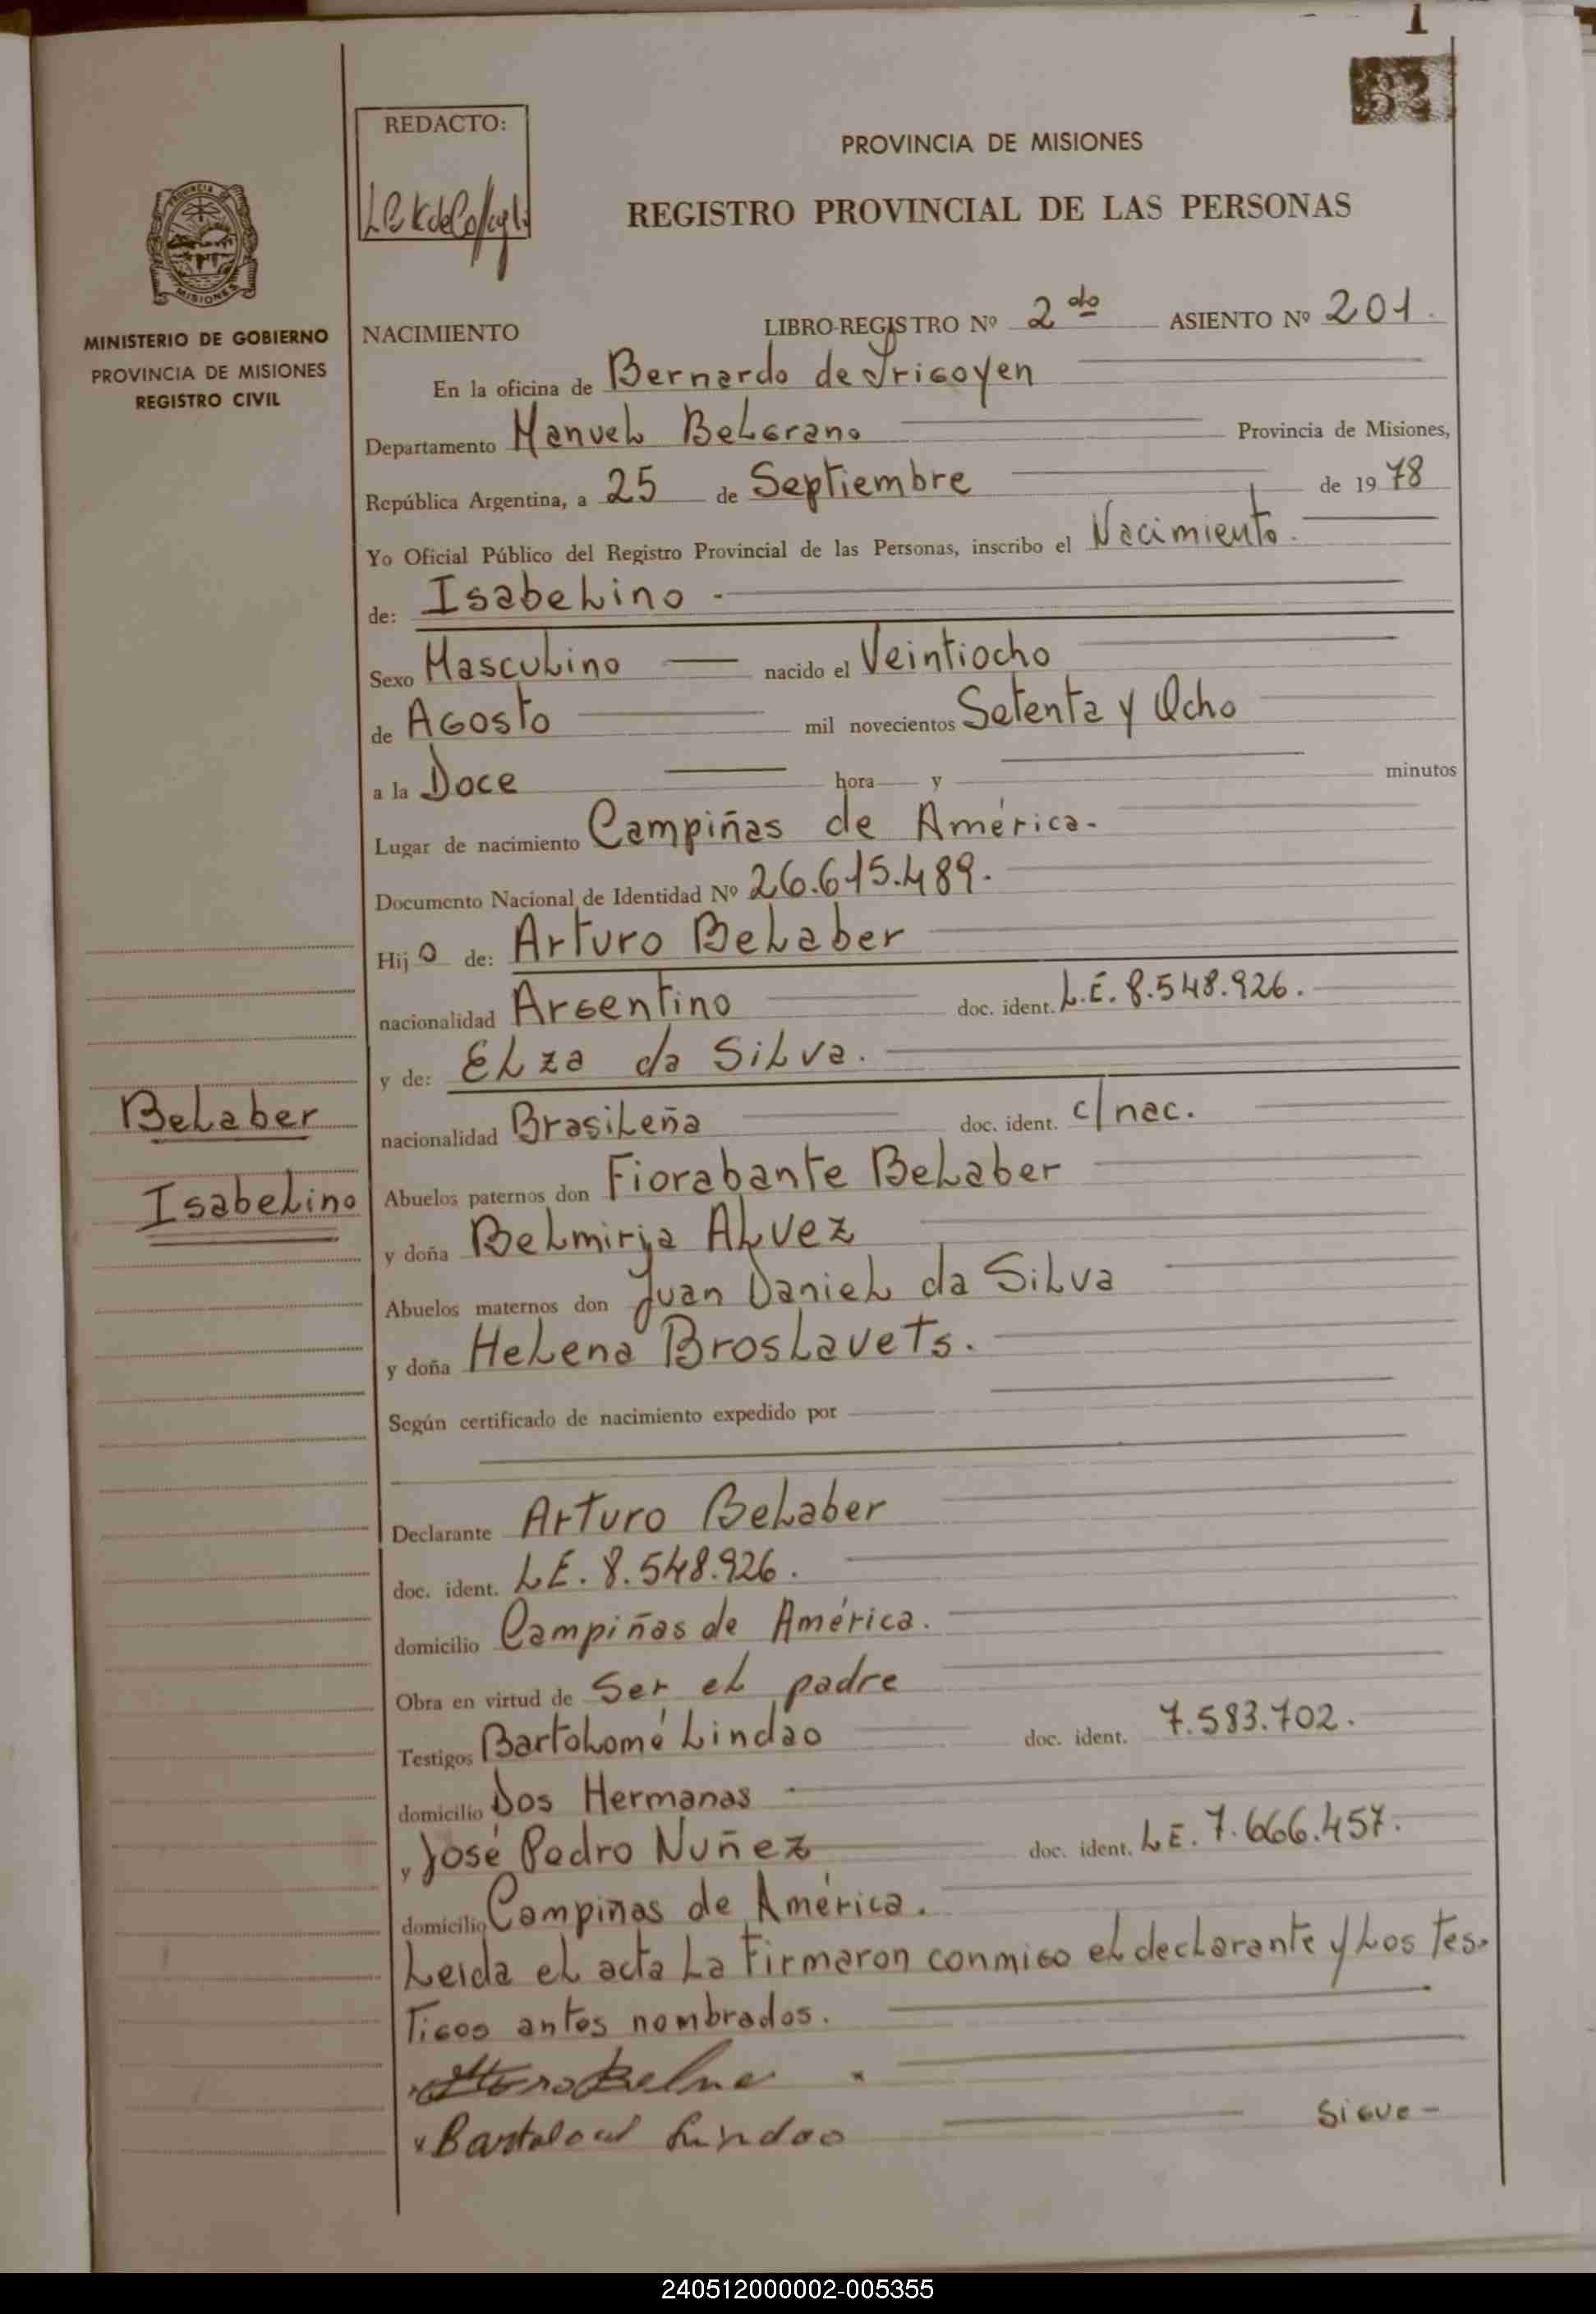 1
REDACTO:
32
PROVINCIA DE MISIONES
REGISTRO PROVINCIAL DE LAS PERSONAS
PROVINCIA
MISIONES
MINISTERIO DE GOBIERNO
PROVINCIA DE MISIONES
REGISTRO CIVIL
NACIMIENTO LIBRO-REGISTRO Nº 2do ASIENTO Nº 201.
En la oficina de Bernardo de Irigoyen
Departamento Manuel Belgrano Provincia de Misiones,
República Argentina, a 25 de Septiembre de 1978
Yo Oficial Público del Registro Provincial de las Personas, inscribo el Nacimiento.
de: Isabelino -
Sexo Masculino nacido el Veintiocho
de Agosto mil novecientos Setenta y Ocho
a la Doce hora y minutos
Lugar de nacimiento Campiñas de América.
Documento Nacional de Identidad Nº 26.615.489.
Hijo de: Arturo Belaber
nacionalidad Argentino doc. ident. L.E. 8.548.926.
y de: Elza da Silva.
Belaber
nacionalidad Brasileña doc. ident. c/nac.
Isabelino
Abuelos paternos don Fiorabante Belaber
y doña Belmirja Alvez
Abuelos maternos don Juan Daniel da Silva
y doña Helena Broslavets.
Según certificado de nacimiento expedido por
Declarante Arturo Belaber
doc. ident. L.E. 8.548.926.
domicilio Campiñas de América.
Obra en virtud de Ser el padre
Testigos Bartolomé Lindao doc. ident. 7.583.702.
domicilio Dos Hermanas
y José Pedro Nuñez doc. ident. L.E. 7.666.457.
domicilio Campiñas de América.
Leida el acta la firmaron conmigo el declarante y los tes-
tigos antes nombrados.
Lindao
Sigue -
240512000002-005355